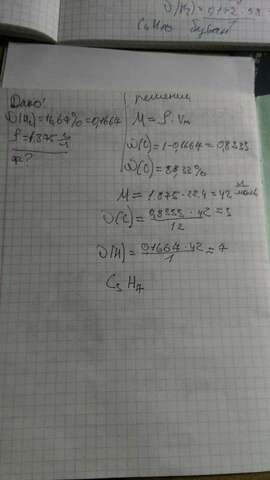 υ(H₂) = 0,1·2
C₄H₁₀ бутан
Дано:
ω(H) = 16,67% = 0,1667
ρ = 1,875 г/л
ф?
решение
M = ρ · Vm
ω(C) = 1 - 0,1667 = 0,8333
ω(C) = 83,33%
M = 1.875 · 22,4 = 42 г/моль
υ(C) = 0,8333 · 42 / 12 = 3
υ(H) = 0,1667 · 42 / 1 = 7
C₃ H₇